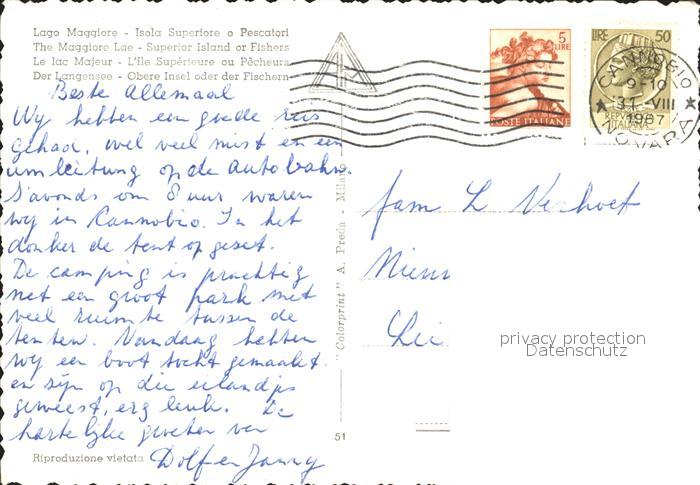 Lago Maggiore - Isola Superiore o Pescatori
The Maggiore Lae - Superior Island or Fishers
Le lac Majeur - L'île Supérieure ou Pêcheurs
Der Langensee - Obere Insel oder der Fischern
Beste Allemaal
Wy hebben een goede reis
gehad, wel veel mist en een
umleitung op de autobahn.
S'avonds om 8 uur waren
wy in Cannobio. In het
donker de tent op gezet.
De camping is prachtig
net een groot park met
veel ruimte tussen de
tenten. Vandaag hebben
wy een boot tocht gemaakt
en zijn op die eilandjes
geweest, erg leuk. De
hartelijke groeten van
Dolf en Janny
Riproduzione vietata
"Colorprint" A. Preda - Milano
51
5
LIRE
POSTE ITALIANE
LIRE 50
CANNOBIO
9-10
31-VIII
1967
NOVARA
fam L Verhoef
privacy protection
Datenschutz